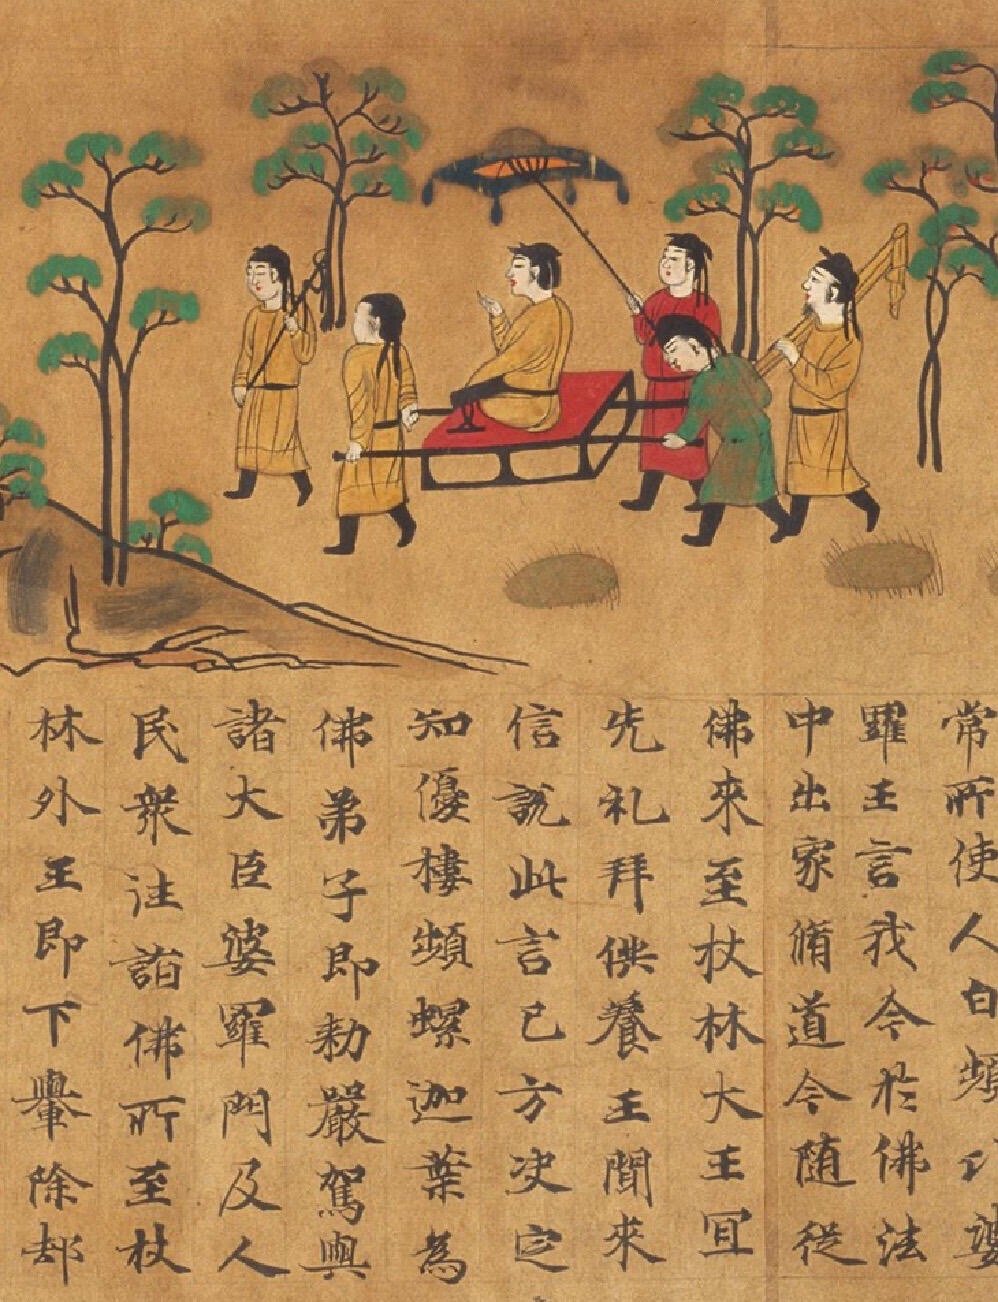 常所使人白頻婆
羅王言我今於佛法
中出家脩道今随從
佛來至杖林大王冝
先礼拜供養王聞來
信說此言已方决定
知優樓頻螺迦葉為
佛弟子即勑嚴駕輿
諸大臣婆羅門及人
民衆往詣佛所至杖
林外王即下轝除却